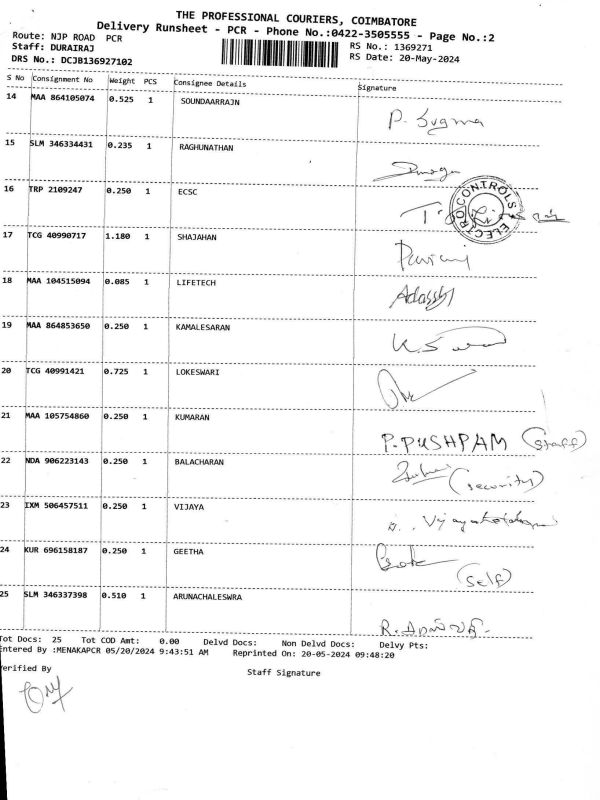 THE PROFESSIONAL COURIERS, COIMBATORE
Delivery Runsheet - PCR - Phone No.:0422-3505555 - Page No.:2
Route: NJP ROAD PCR
RS No.: 1369271
Staff: DURAIRAJ
RS Date: 20-May-2024
DRS No.: DCJB136927102
S No Consignment No Weight PCS Consignee Details Signature
14 MAA 864105074 0.525 1 SOUNDAARRAJN
P. Sugma
15 SLM 346334431 0.235 1 RAGHUNATHAN
16 TRP 2109247 0.250 1 ECSC
CONTROLS ELECTRO
17 TCG 40990717 1.180 1 SHAJAHAN
18 MAA 104515094 0.085 1 LIFETECH
19 MAA 864853650 0.250 1 KAMALESARAN
20 TCG 40991421 0.725 1 LOKESWARI
21 MAA 105754860 0.250 1 KUMARAN
P. PUSHPAM (Staff)
22 NDA 906223143 0.250 1 BALACHARAN
(security)
23 IXM 506457511 0.250 1 VIJAYA
24 KUR 696158187 0.250 1 GEETHA
(self)
25 SLM 346337398 0.510 1 ARUNACHALESWRA
Tot Docs: 25 Tot COD Amt: 0.00 Delvd Docs: Non Delvd Docs: Delvy Pts:
Entered By :MENAKAPCR 05/20/2024 9:43:51 AM Reprinted On: 20-05-2024 09:48:20
Verified By
Staff Signature